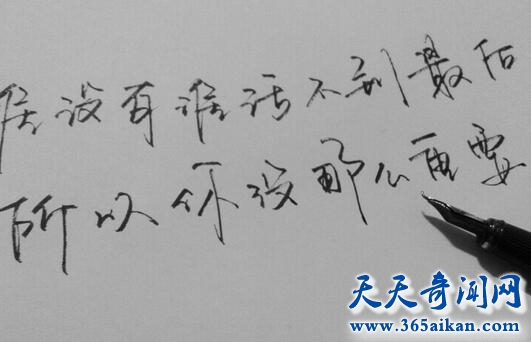 没有谁活不到最后
所以你没那么重要
天天奇闻网
www.365aikan.com